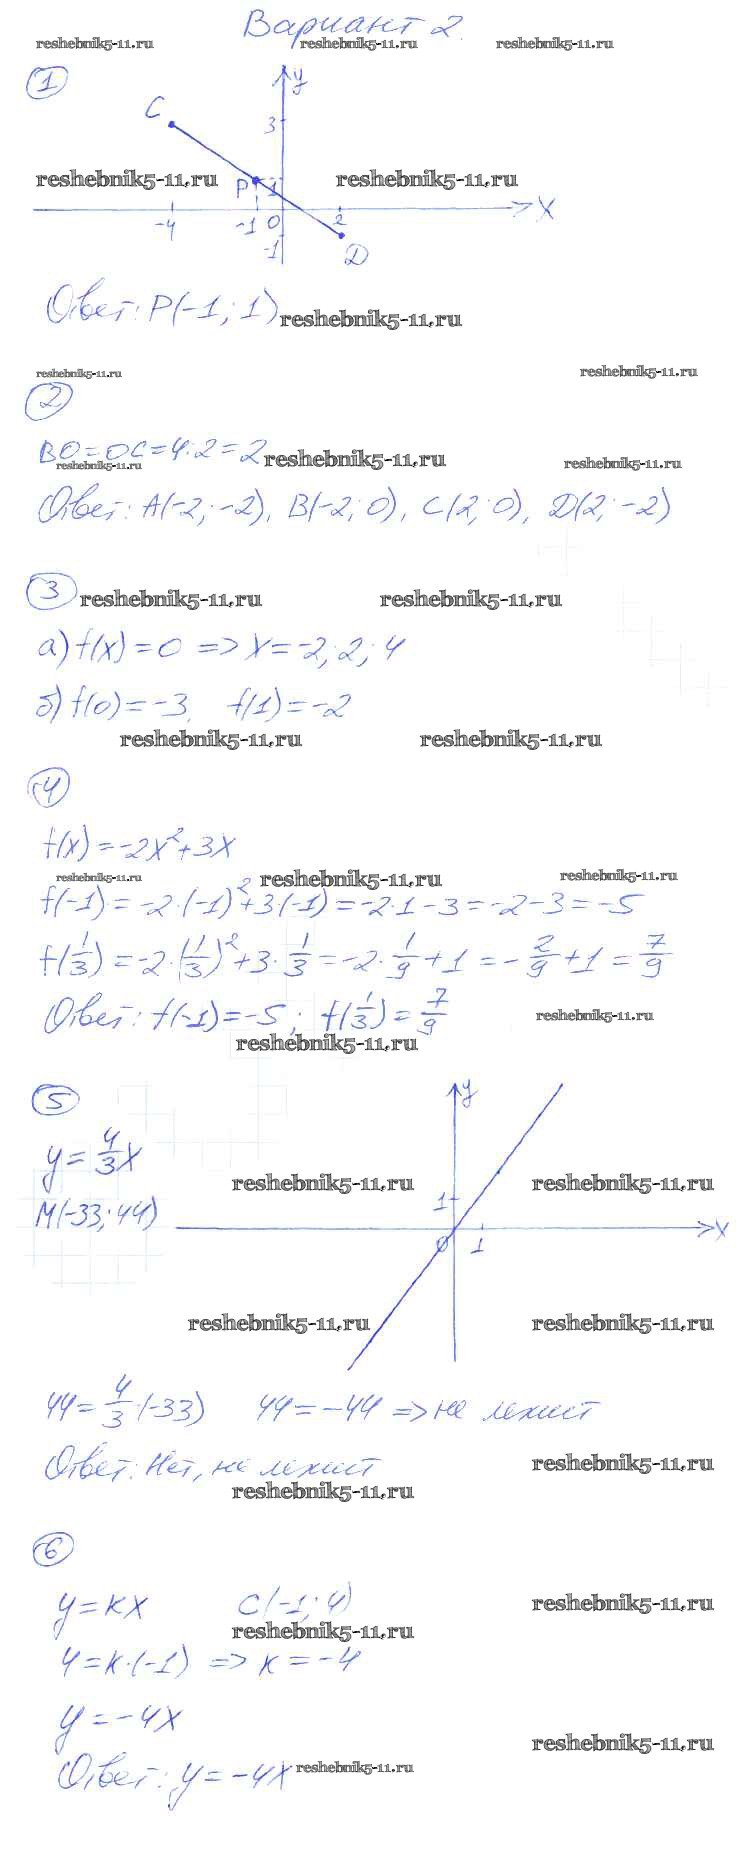 Вариант 2.
reshebnik5-11.ru reshebnik5-11.ru reshebnik5-11.ru
1
y
C
3
reshebnik5-11.ru reshebnik5-11.ru
P 1
-4 -1 0 2 X
-1
D
Ответ: P(-1; 1)
reshebnik5-11.ru
reshebnik5-11.ru reshebnik5-11.ru
2
BO=OC=4:2=2
reshebnik5-11.ru
reshebnik5-11.ru reshebnik5-11.ru
Ответ: A(-2; -2), B(-2; 0), C(2; 0), D(2; -2)
3
reshebnik5-11.ru reshebnik5-11.ru
а) f(x)=0 => x=-2; 2; 4
б) f(0)=-3, f(1)=-2
reshebnik5-11.ru reshebnik5-11.ru
4
f(x)=-2x²+3x
reshebnik5-11.ru reshebnik5-11.ru reshebnik5-11.ru
f(-1)=-2·(-1)²+3·(-1)=-2·1-3=-2-3=-5
f(1/3)=-2·(1/3)²+3·1/3=-2·1/9+1=-2/9+1=7/9
Ответ: f(-1)=-5; f(1/3)=7/9
reshebnik5-11.ru
reshebnik5-11.ru
5
y
y=4/3x
reshebnik5-11.ru reshebnik5-11.ru
M(-33; 44)
1
0 1 X
reshebnik5-11.ru reshebnik5-11.ru
44=4/3·(-33) 44=-44 => не лежит
Ответ: Нет, не лежит
reshebnik5-11.ru
reshebnik5-11.ru
6
y=kx C(-1; 4)
reshebnik5-11.ru
reshebnik5-11.ru
4=k·(-1) => k=-4
y=-4x
reshebnik5-11.ru
Ответ: y=-4x
reshebnik5-11.ru